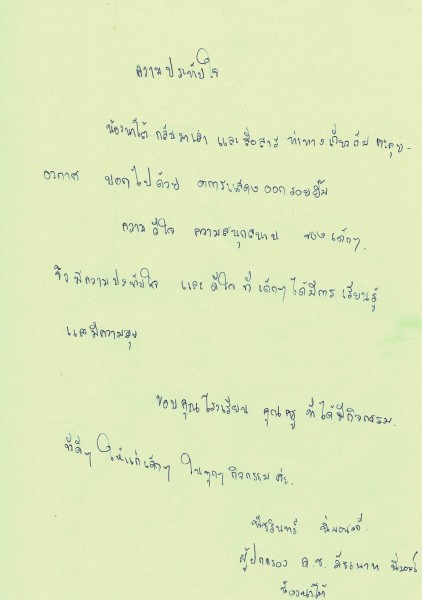 ความประทับใจ
น้องนาโต้ กลับมาเล่า และสื่อสาร ท่าทางเกี่ยวกับ
อวกาศ บอกไปด้วย อาการแสดงออก รอยยิ้ม
ความดีใจ ความสนุกสนาน ของเด็กๆ.
จึงมีความประทับใจ และดีใจ ที่เด็กๆ ได้มีการเรียนรู้
และมีความสุข
ขอบคุณโรงเรียน คุณครู ที่ได้มีกิจกรรม.
ที่ดีๆ ให้แก่เด็กๆ ในทุกๆ กิจกรรม ค่ะ.
ผู้ปกครอง ด.ช.
น้องนาโต้